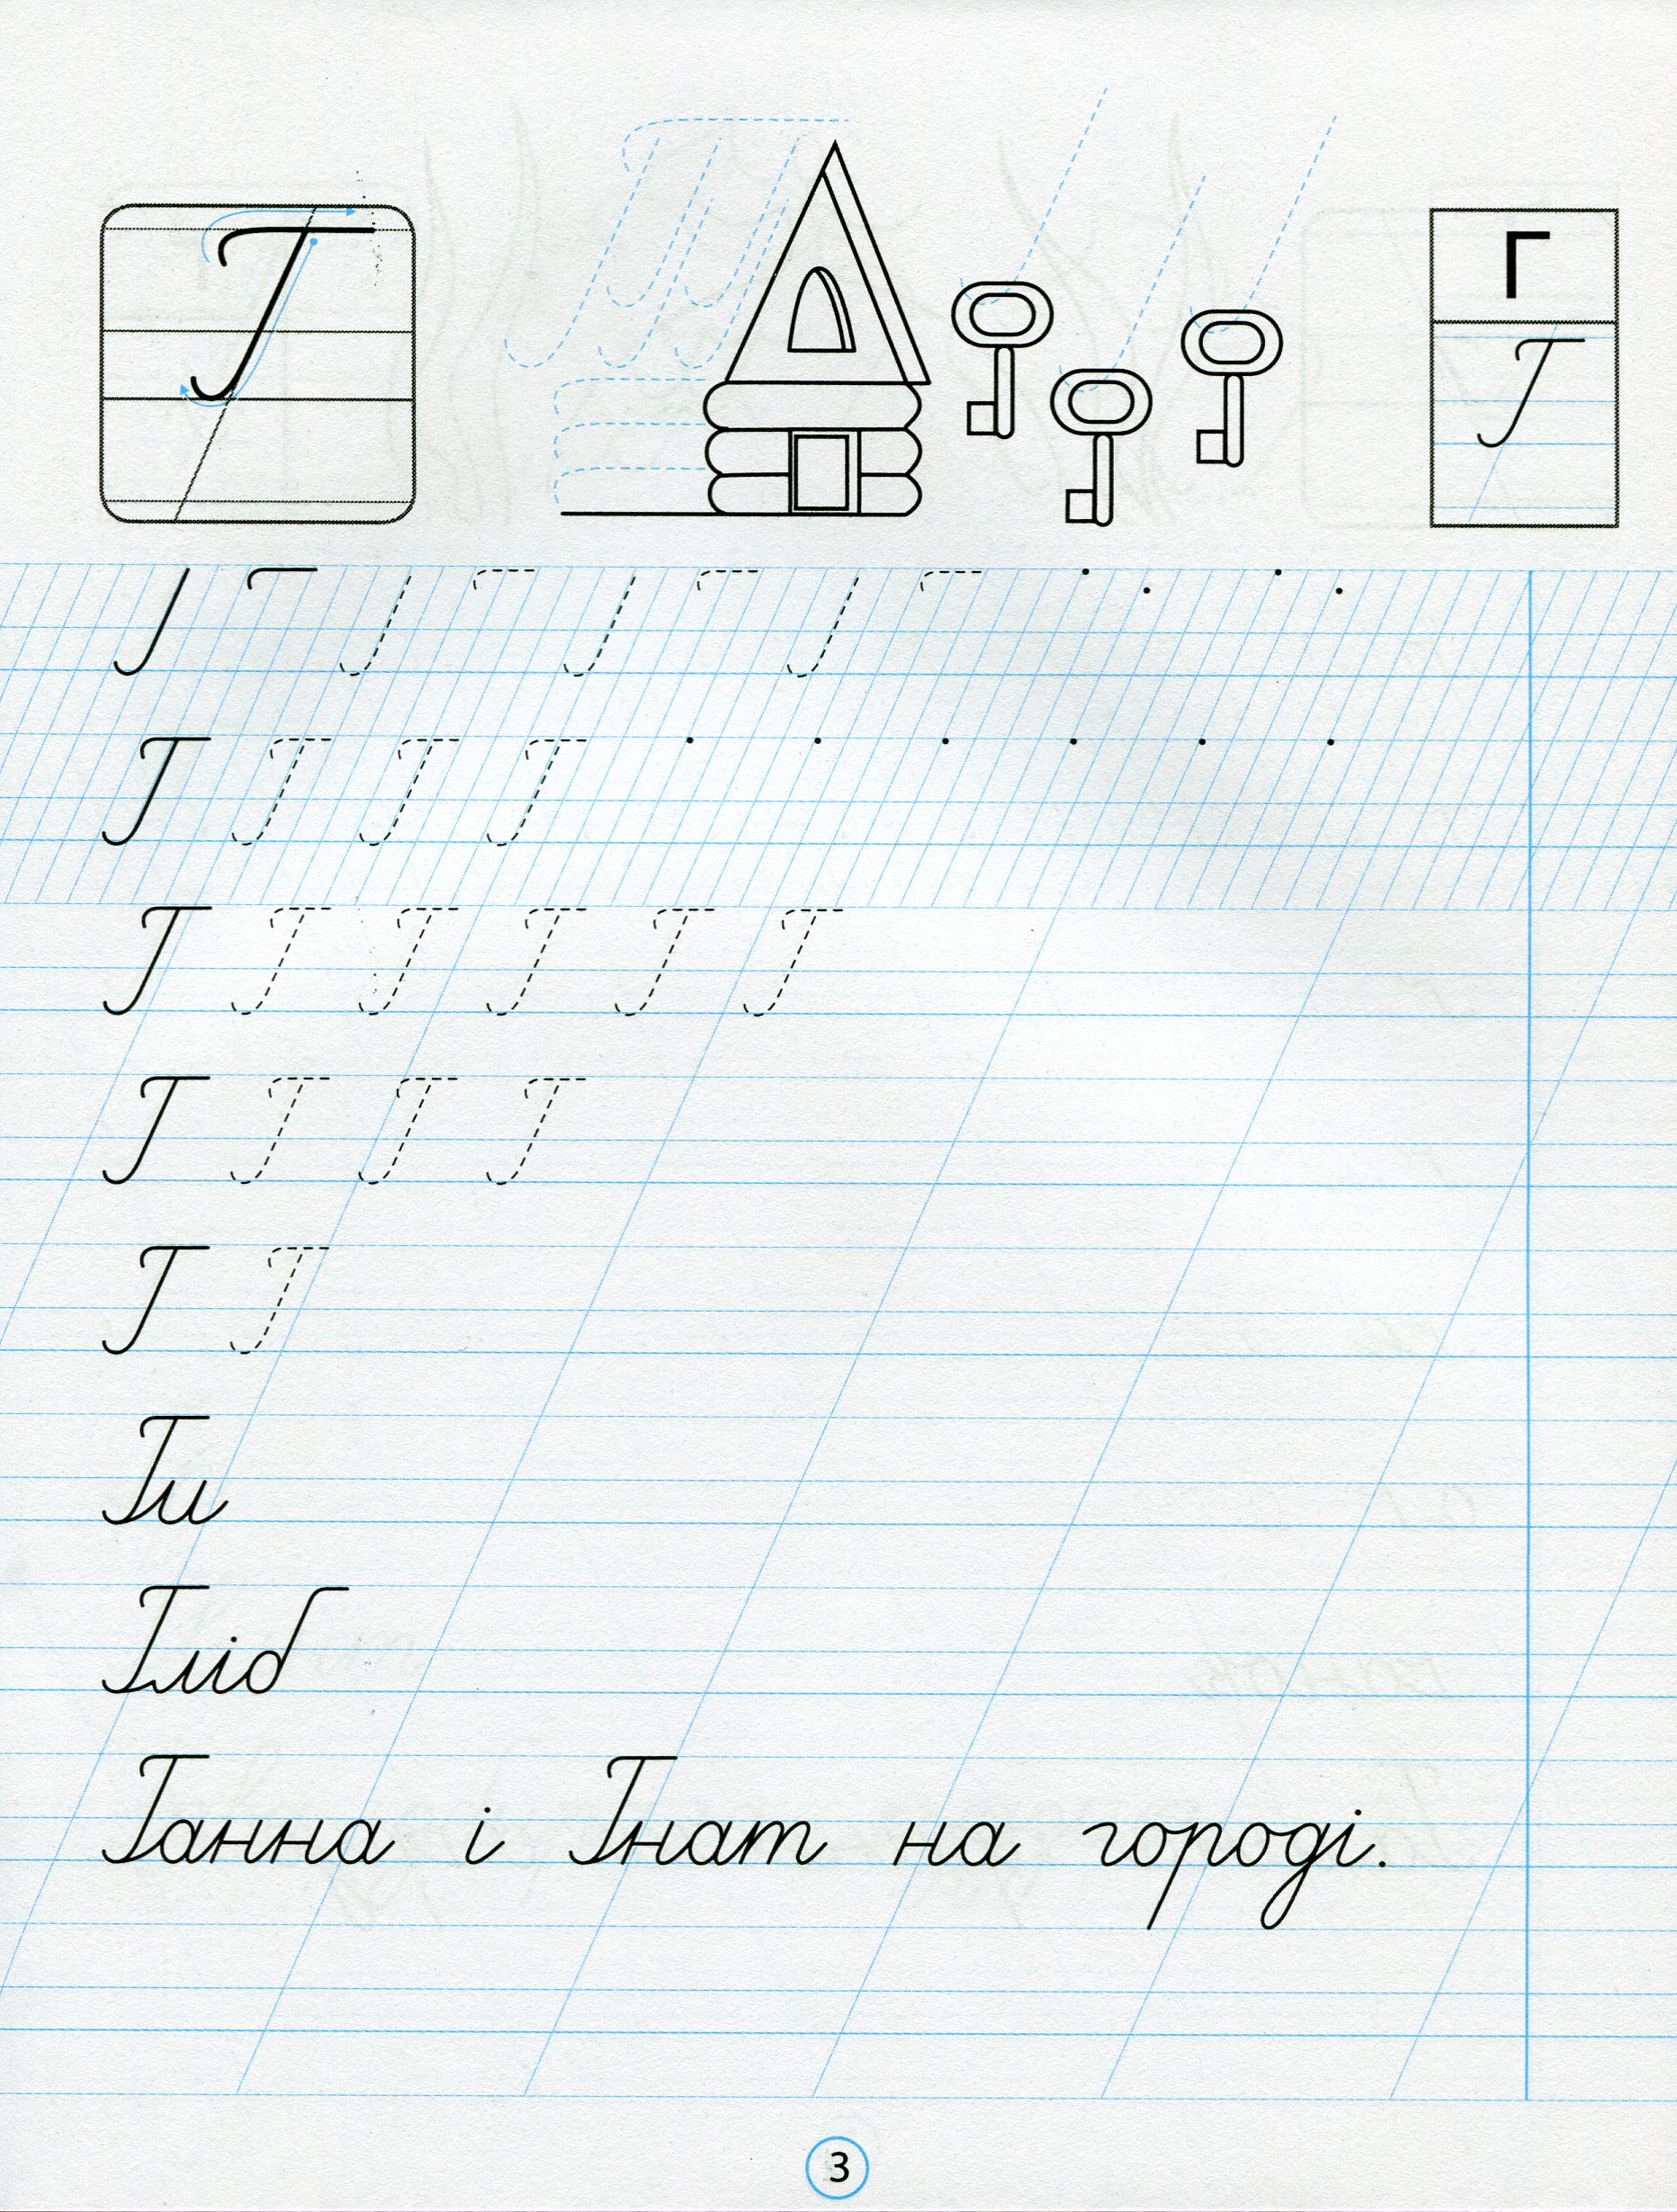 Г Г
Г
Г Г Г Г
Г Г Г Г Г Г
Г Г Г Г
Г Г
Ги
Гліб
Ганна і Гнат на городі.
3